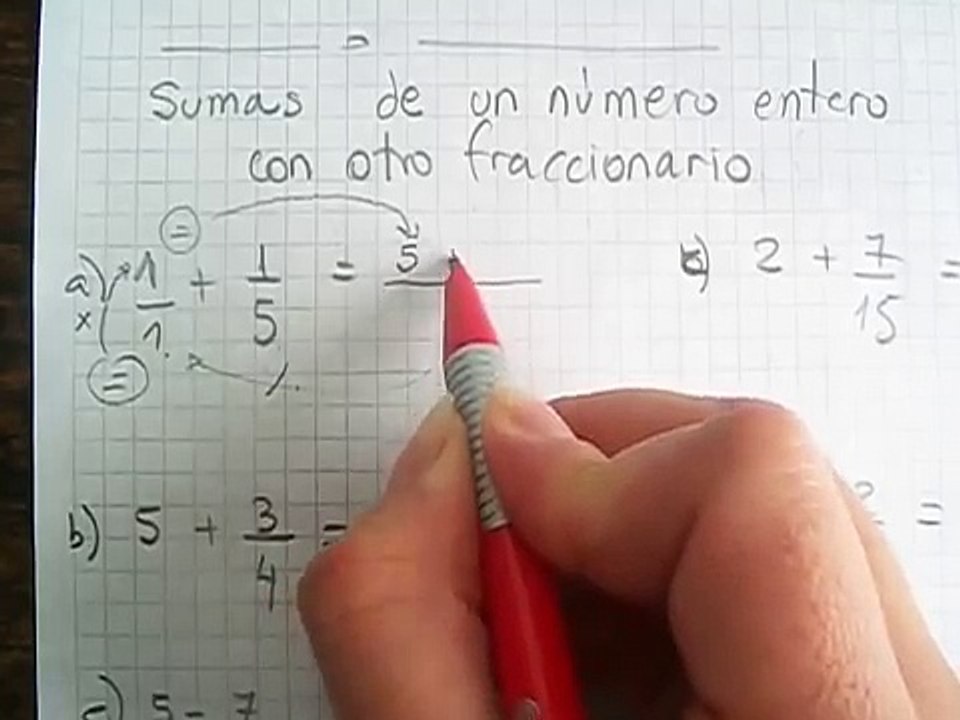 Sumas de un número entero
con otro fraccionario
a) 1/1 + 1/5 = 5
x
=
=
c) 2 + 7/15 =
b) 5 + 3/4 =
2 =
5 - 7